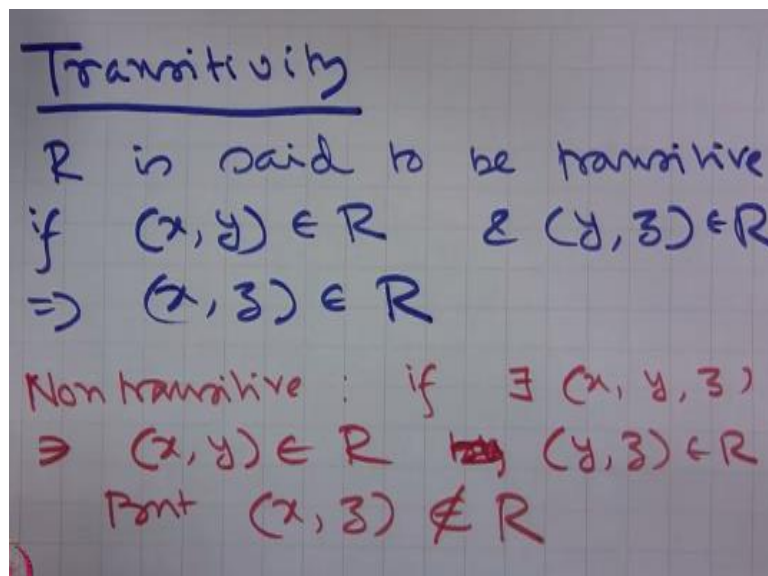 Transitivity
R is said to be transitive
if (x, y) ∈ R & (y, z) ∈ R
=> (x, z) ∈ R
Non transitive : if ∃ (x, y, z)
∋ (x, y) ∈ R , (y, z) ∈ R
But (x, z) ∉ R